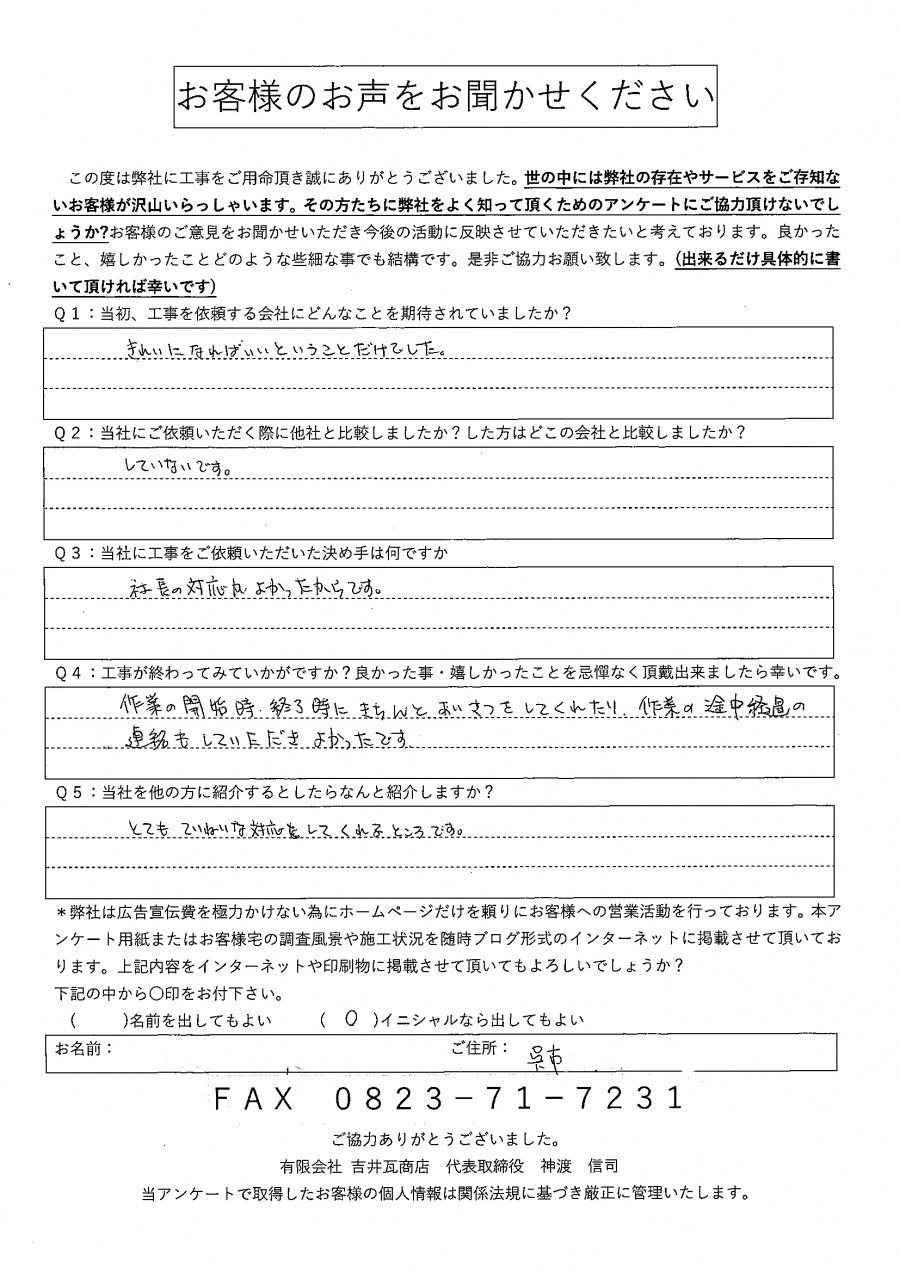 お客様のお声をお聞かせください
この度は弊社に工事をご用命頂き誠にありがとうございました。世の中には弊社の存在やサービスをご存知な
いお客様が沢山いらっしゃいます。その方たちに弊社をよく知って頂くためのアンケートにご協力頂けないでし
ょうか?お客様のご意見をお聞かせいただき今後の活動に反映させていただきたいと考えております。良かった
こと、嬉しかったことどのような些細な事でも結構です。是非ご協力お願い致します。(出来るだけ具体的に書
いて頂ければ幸いです)
Q1：当初、工事を依頼する会社にどんなことを期待されていましたか？
きれいになればいいということだけでした。
Q2：当社にご依頼いただく際に他社と比較しましたか？した方はどこの会社と比較しましたか？
していないです。
Q3：当社に工事をご依頼いただいた決め手は何ですか
社長の対応がよかったからです。
Q4：工事が終わってみていかがですか？良かった事・嬉しかったことを忌憚なく頂戴出来ましたら幸いです。
作業の開始時.終了時にきちんとあいさつをしてくれたり、作業の途中経過の
連絡もしていただきよかったです
Q5：当社を他の方に紹介するとしたらなんと紹介しますか？
とてもていねいな対応をしてくれるところです。
＊弊社は広告宣伝費を極力かけない為にホームページだけを頼りにお客様への営業活動を行っております。本ア
ンケート用紙またはお客様宅の調査風景や施工状況を随時ブログ形式のインターネットに掲載させて頂いてお
ります。上記内容をインターネットや印刷物に掲載させて頂いてもよろしいでしょうか？
下記の中から〇印をお付下さい。
(　　)名前を出してもよい　　(　○　)イニシャルなら出してもよい
お名前：　　ご住所：　呉市
FAX　0823－71－7231
ご協力ありがとうございました。
有限会社 吉井瓦商店　代表取締役　神渡　信司
当アンケートで取得したお客様の個人情報は関係法規に基づき厳正に管理いたします。